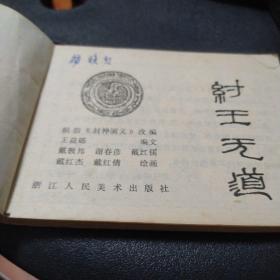 纣王无道
根据《封神演义》改编
王益砺 编文
戴敦邦 谢春彦 戴红儒
戴红杰 戴红倩 绘画
浙江人民美术出版社